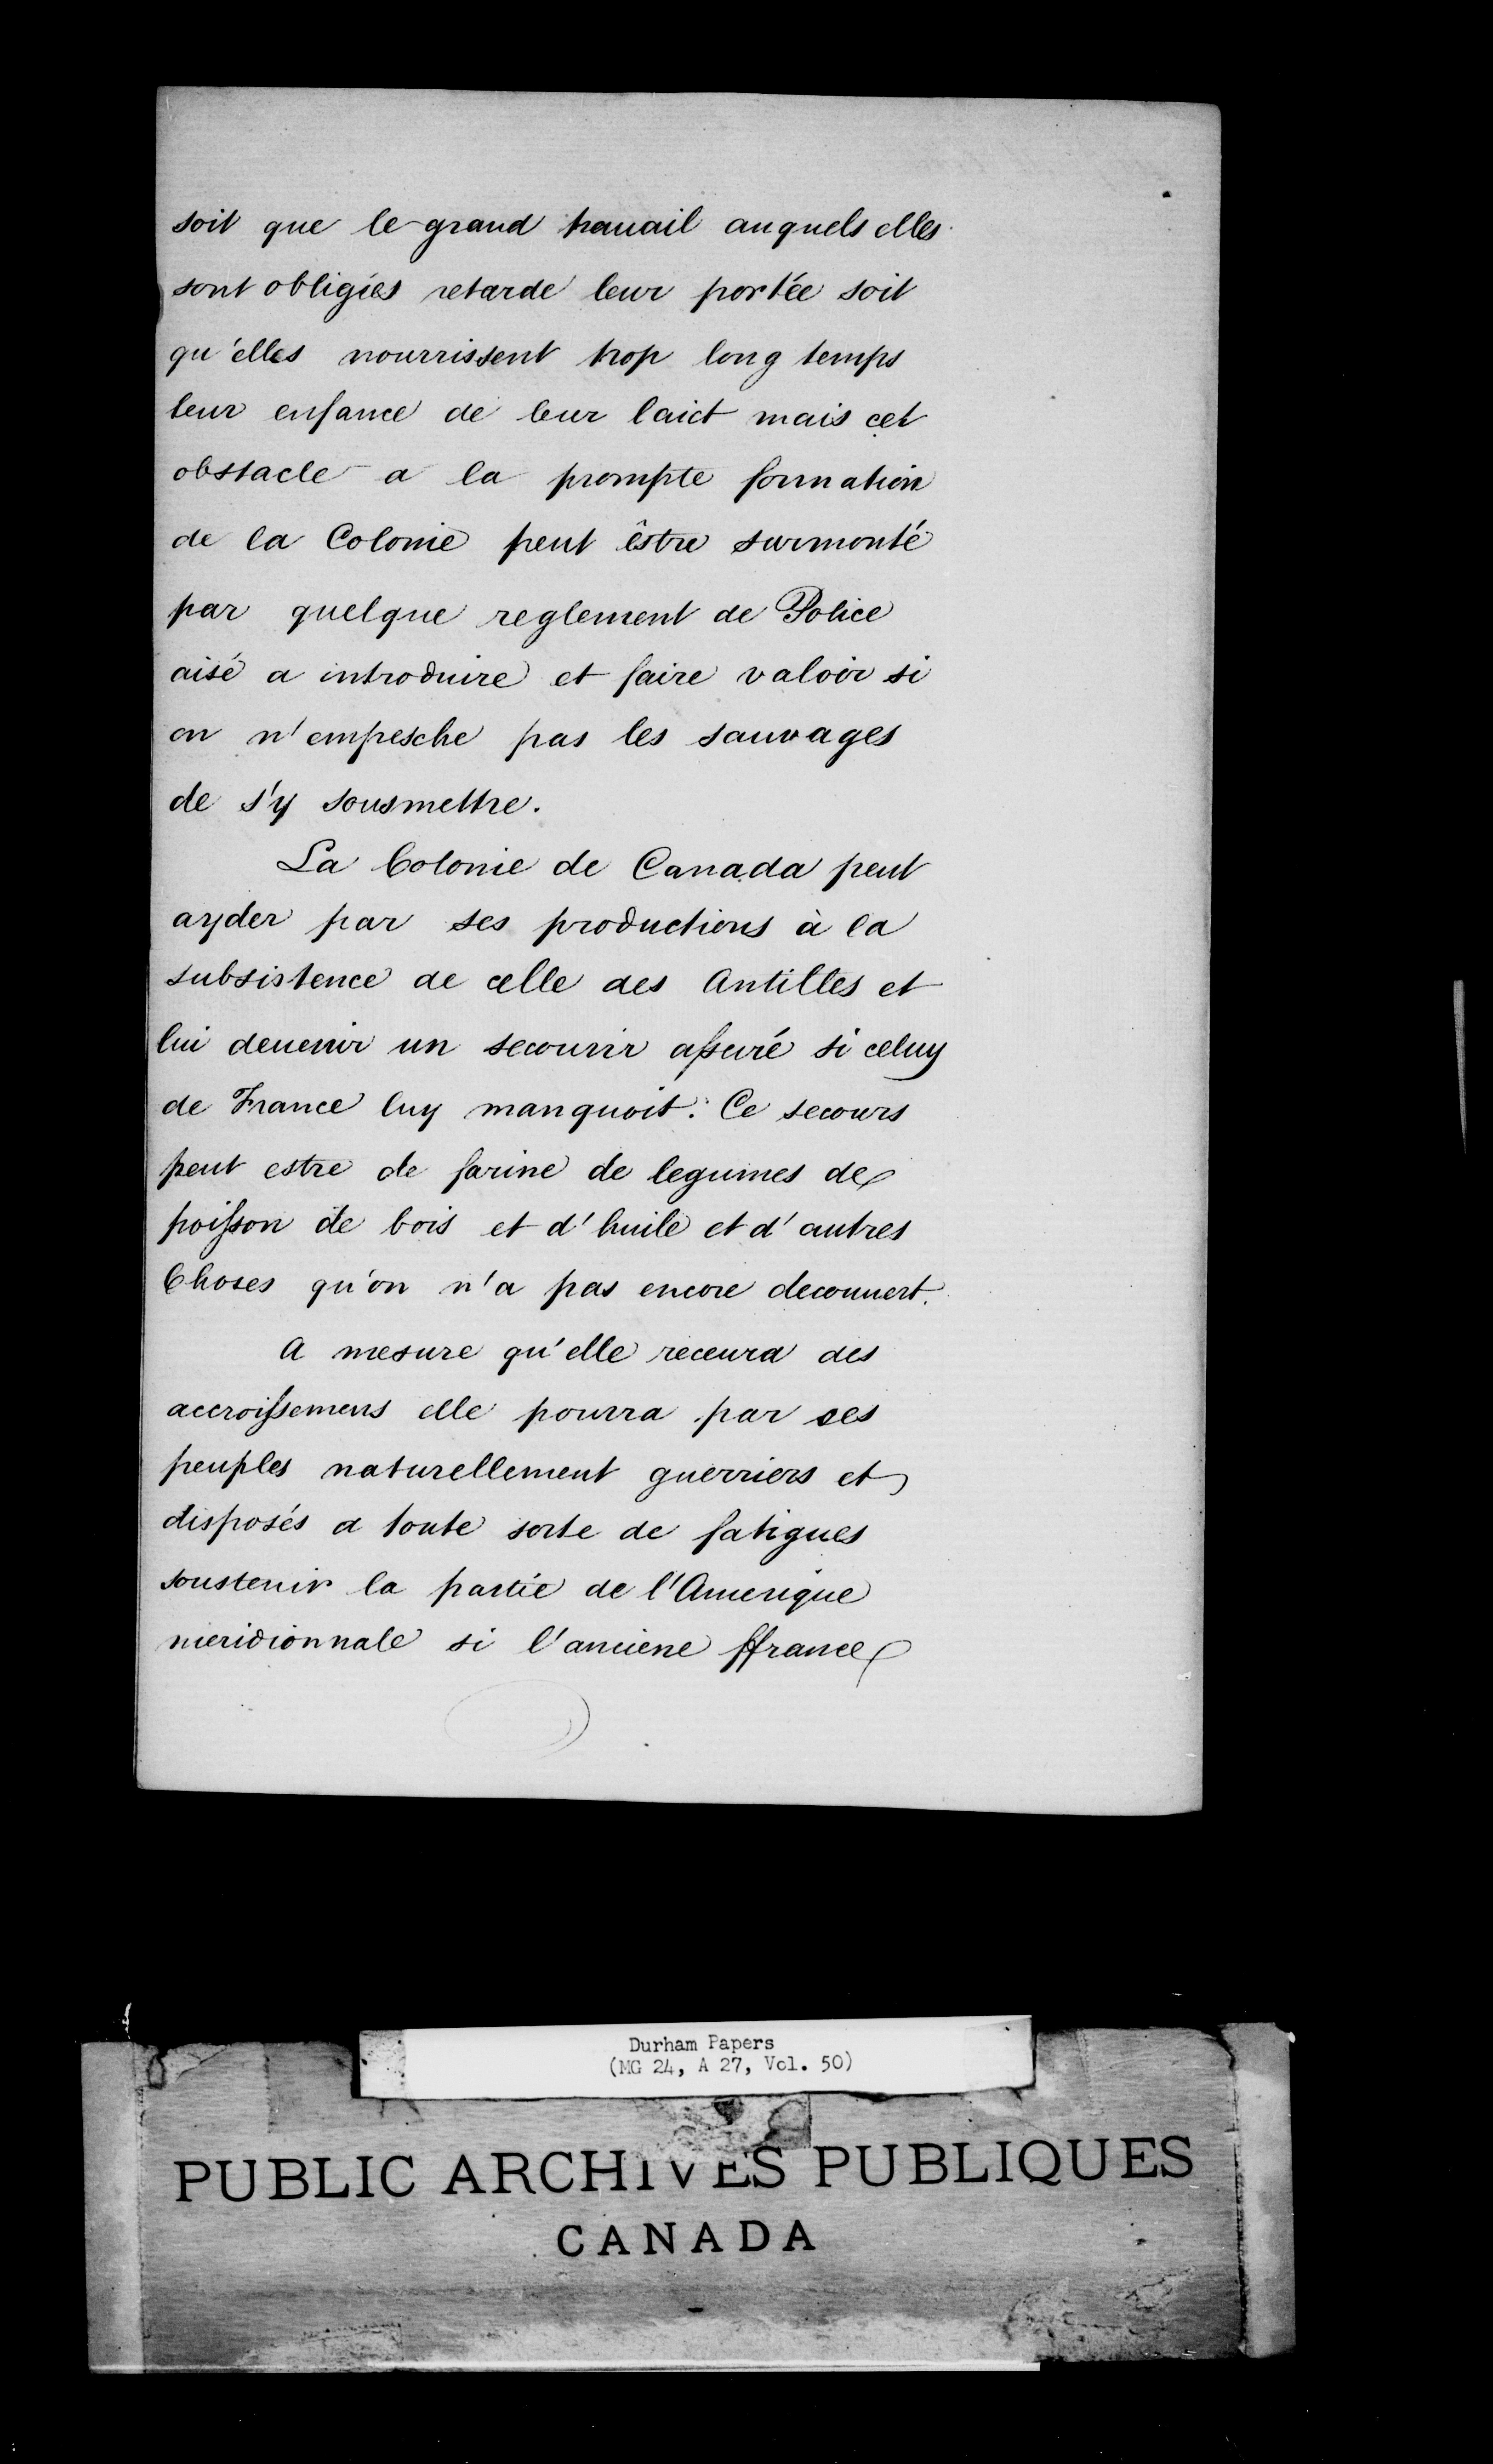 soit que le grand trauail auquels elles
sont obligiés retarde leur portée soit
qu'elles nourrissent trop long temps
leur enfance de leur laict mais cet
obstacle a la prompte formation
de la Colonie peut êstre surmonté
par quelque reglement de Police
aisé a introduire et faire valoir si
on n'empesche pas les sauvages
de s'y sousmettre.
La Colonie de Canada peut
ayder par ses productions à la
subsistence de celle des Antilles et
lui deuenir un secourir assuré si celuy
de France luy manquoit. Ce secours
peut estre de farine de legumes de
poisson de bois et d'huile et d'autres
Choses qu'on n'a pas encore decouuert.
A mesure qu'elle receura des
accroissemens elle pourra par ses
peuples naturellement guerriers et
disposés a toute sorte de fatigues
soustenir la partie de l'Amerique
meridionnale si l'anciene ffrance
Durham Papers
(MG 24, A 27, Vol. 50)
PUBLIC ARCHIVES PUBLIQUES
CANADA